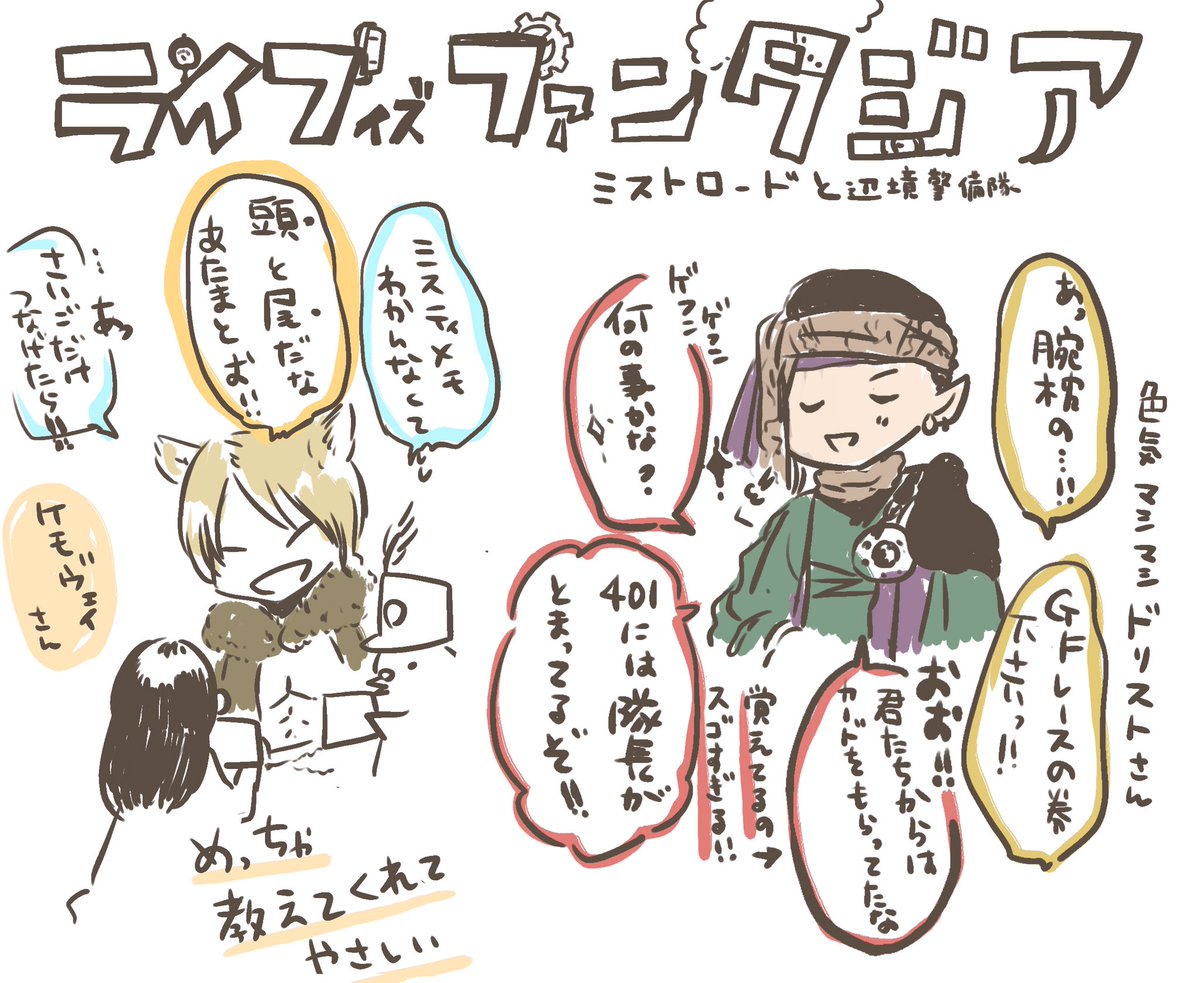 ライブイズファンタジア
ミストロードと辺境警備隊
色気マシマシドリストさん
あっ
腕枕の…!!
GFレースの券
下さいっ!!
ゲフン
ゲフン
何の事かな?
おお!!
君たちからは
カードをもらってたな
覚えてるの→
スゴすぎる!!
401には隊長が
とまってるぞ!!
ミスティメモ
わかんなくて
頭と尾だな
あたまとお!!
…あっ
さいごだけ
つなげたら!!!
ケモヴェイ
さん
めっちゃ
教えてくれて
やさしい